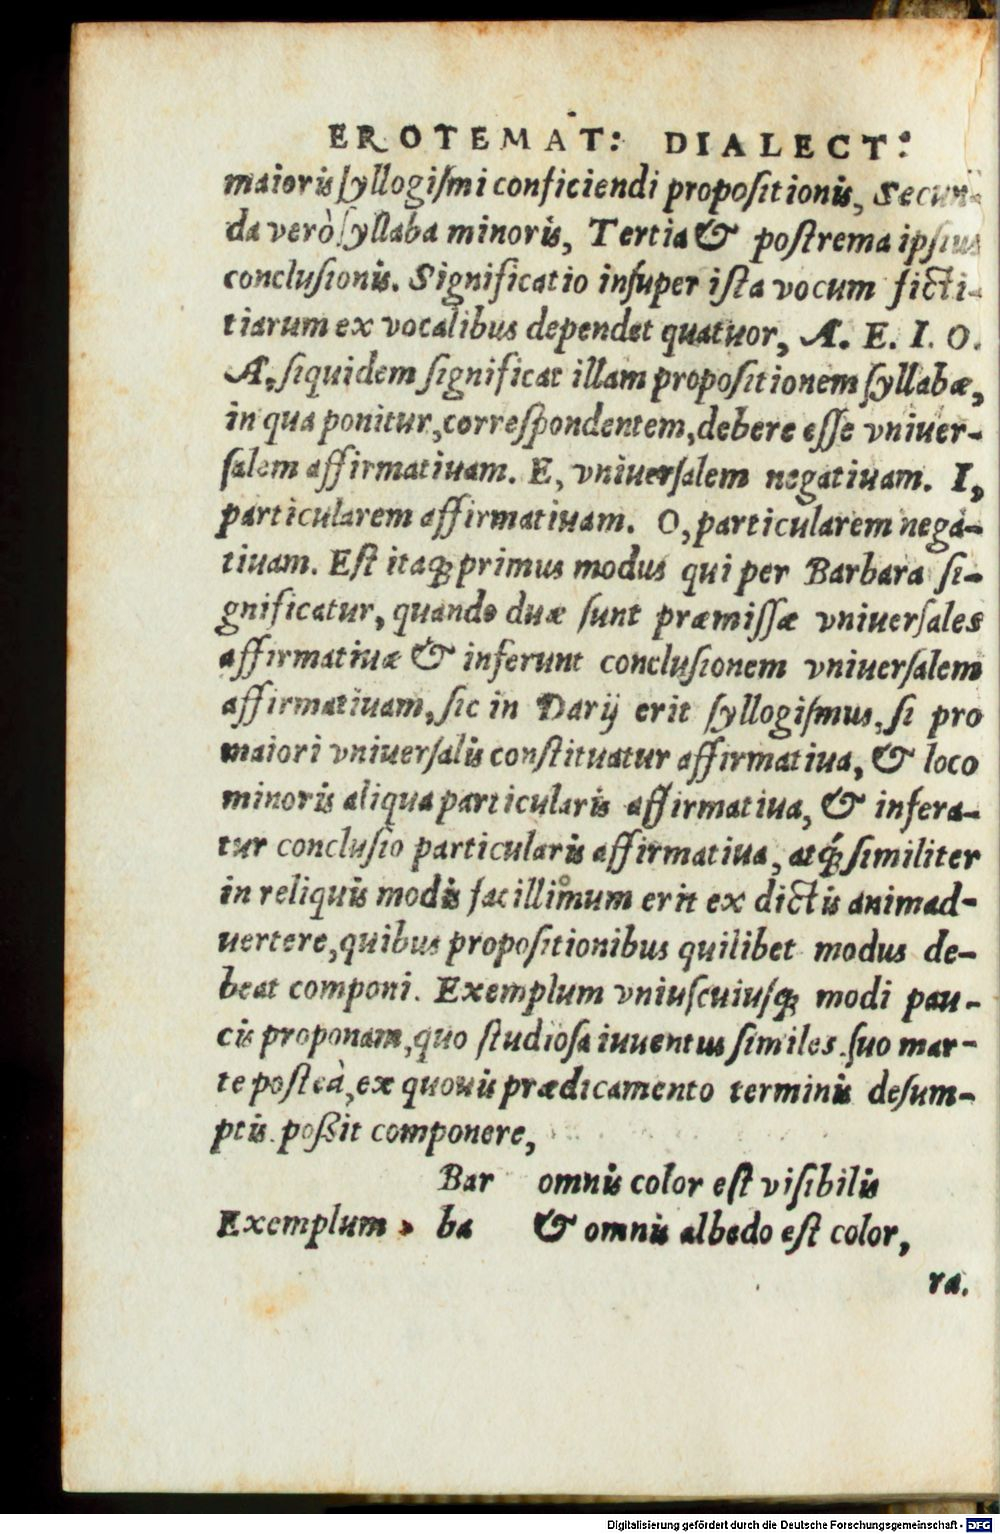 EROTEMAT: DIALECT:
maioris ſyllogiſmi conficiendi propoſitionis, Secun-
da verò ſyllaba minoris, Tertia & poſtrema ipſius
concluſionis. Significatio inſuper iſta vocum ficti-
tiarum ex vocalibus dependet quatuor, A. E. I. O.
A, ſiquidem ſignificat illam propoſitionem ſyllabæ,
in qua ponitur, correſpondentem, debere eſſe vniuer-
ſalem affirmatiuam. E, vniuerſalem negatiuam. I,
particularem affirmatiuam. O, particularem nega-
tiuam. Eſt itaq; primus modus qui per Barbara ſi-
gnificatur, quando duæ ſunt præmiſſæ vniuerſales
affirmatiuæ & inferunt concluſionem vniuerſalem
affirmatiuam, ſic in Darij erit ſyllogiſmus, ſi pro
maiori vniuerſalis conſtituatur affirmatiua, & loco
minoris aliqua particularis affirmatiua, & infera-
tur concluſio particularis affirmatiua, atq́; ſimiliter
in reliquis modis facillimum erit ex dictis animad-
uertere, quibus propoſitionibus quilibet modus de-
beat componi. Exemplum vniuſcuiuſq; modi pau-
cis proponam, quo ſtudioſa iuuentus ſimiles ſuo mar-
te poſteà, ex quouis prædicamento terminis deſum-
ptis poßit componere,
Bar omnis color eſt viſibilis
Exemplum ba & omnis albedo eſt color,
ra.
Digitalisierung gefördert durch die Deutsche Forschungsgemeinschaft - DFG